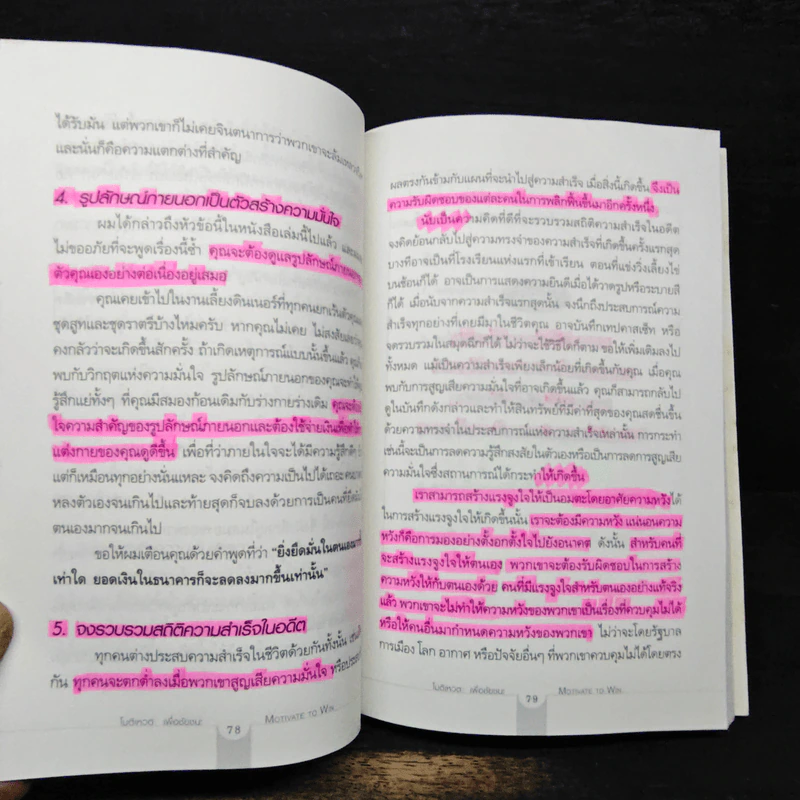 ได้รับมัน แต่พวกเขาก็ไม่เคยจินตนาการว่าพวกเขาจะล้มเหลว
และนั่นก็คือความแตกต่างที่สำคัญ
4. รูปลักษณ์ภายนอกเป็นตัวสร้างความมั่นใจ
ผมได้กล่าวถึงหัวข้อนี้ในหนังสือเล่มนี้ไปแล้ว
ไม่ขออภัยที่จะพูดเรื่องนี้ซ้ำ คุณจะต้องดูแลรูปลักษณ์ภายนอก
ตัวคุณเองอย่างต่อเนื่องอยู่เสมอ
คุณเคยเข้าไปในงานเลี้ยงดินเนอร์ที่ทุกคนยกเว้นตัวคุณ
ชุดสูทและชุดราตรีบ้างไหมครับ หากคุณไม่เคย ไม่สงสัยเลย
คงกลัวว่าจะเกิดขึ้นสักครั้ง ถ้าเกิดเหตุการณ์แบบนั้นขึ้นแล้ว
พบกับวิกฤตแห่งความมั่นใจ รูปลักษณ์ภายนอกของคุณจะทำให้
รู้สึกแย่ทั้งๆ ที่คุณมีสมองก้อนเดิมกับร่างกายร่างเดิม
ใจความสำคัญของรูปลักษณ์ภายนอกและต้องใช้จ่ายเงินเพื่อ
แต่งกายของคุณดูดีขึ้น เพื่อที่ว่าภายในใจจะได้มีความรู้สึกดี
แต่ก็เหมือนทุกอย่างนั่นแหละ จงคิดถึงความเป็นไปได้เถอะ
หลงตัวเองจนเกินไปและท้ายสุดก็จบลงด้วยการเป็นคนที่ยึดมั่น
ตนเองมากจนเกินไป
ขอให้ผมเตือนคุณด้วยคำพูดที่ว่า "ยิ่งยึดมั่นในตนเอง
เท่าใด ยอดเงินในธนาคารก็จะลดลงมากขึ้นเท่านั้น"
5. จงรวบรวมสถิติความสำเร็จในอดีต
ทุกคนต่างประสบความสำเร็จในชีวิตด้วยกันทั้งนั้น
กัน ทุกคนจะตกต่ำลงเมื่อพวกเขาสูญเสียความมั่นใจ
โมติเวต เพื่อชัยชนะ 78 MOTIVATE TO WIN
ผลตรงกันข้ามกับแผนที่จะนำไปสู่ความสำเร็จ เมื่อสิ่งนี้เกิดขึ้น จึงเป็น
ความรับผิดชอบของแต่ละคนในการพลิกฟื้นขึ้นมาอีกครั้งหนึ่ง
นับเป็นความคิดที่ดีที่จะรวบรวมสถิติความสำเร็จในอดีต
จงคิดย้อนกลับไปสู่ความทรงจำของความสำเร็จที่เกิดขึ้นครั้งแรกสุด
บางทีอาจเป็นที่โรงเรียนแห่งแรกที่เข้าเรียน ตอนที่แข่งวิ่งเลี้ยงไข่
บนช้อนก็ได้ อาจเป็นการแสดงความยินดีเมื่อได้วาดรูปหรือระบายสี
ก็ได้ เมื่อนับจากความสำเร็จแรกสุดนั้น จงนึกถึงประสบการณ์ความ
สำเร็จทุกอย่างที่เคยมีมาในชีวิตคุณ อาจบันทึกเทปคาสเซ็ท หรือ
จดรวบรวมในสมุดฉีกก็ได้ ไม่ว่าจะใช้วิธีใดก็ตาม ขอให้เพิ่มเติมลงไป
ทั้งหมด แม้เป็นความสำเร็จเพียงเล็กน้อยที่เกิดขึ้นกับคุณ เมื่อคุณ
พบกับการสูญเสียความมั่นใจที่อาจเกิดขึ้นแล้ว คุณก็สามารถกลับไป
ดูในบันทึกดังกล่าวและทำให้สินทรัพย์ที่มีค่าที่สุดของคุณสดชื่นขึ้น
ด้วยความทรงจำในประสบการณ์แห่งความสำเร็จเหล่านั้น การกระทำ
เช่นนี้จะเป็นการลดความรู้สึกสงสัยในตัวเองหรือเป็นการลดการสูญเสีย
ความมั่นใจซึ่งสถานการณ์ได้กระทำให้เกิดขึ้น
เราสามารถสร้างแรงจูงใจให้เป็นอมตะโดยอาศัยความหวังได้
ในการสร้างแรงจูงใจให้เกิดขึ้นนั้น เราจะต้องมีความหวัง แน่นอนความ
หวังก็คือการมองอย่างตั้งอกตั้งใจไปยังอนาคต ดังนั้น สำหรับคนที่
จะสร้างแรงจูงใจให้ตนเอง พวกเขาจะต้องรับผิดชอบในการสร้าง
ความหวังให้กับตนเองด้วย คนที่มีแรงจูงใจสำหรับตนเองอย่างแท้จริง
แล้ว พวกเขาจะไม่ทำให้ความหวังของพวกเขาเป็นเรื่องที่ควบคุมไม่ได้
หรือให้คนอื่นมากำหนดความหวังของพวกเขา ไม่ว่าจะโดยรัฐบาล
การเมือง โลก อากาศ หรือปัจจัยอื่นๆ ที่พวกเขาควบคุมไม่ได้โดยตรง
โมติเวต เพื่อชัยชนะ 79 MOTIVATE TO WIN